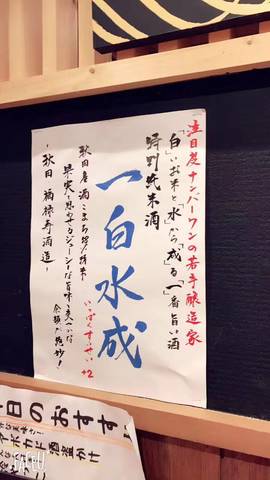 注目度ナンバーワンの若手醸造家
「白」いお米と水から「成」る「一番旨い酒
特別純米酒
一白水成
いっぱくすいせい +2
秋田産酒こまち58%精米
果実を思わせるジューシーな旨味と爽やかな
余韻が絶妙!
~秋田 福禄寿酒造~
日のおすすめ